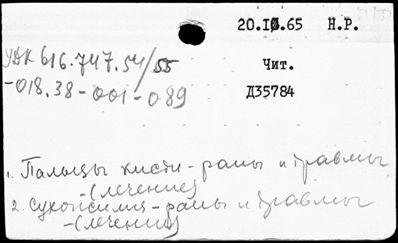 20.IX.65 Н.Р.
УДК 616.747.54/55
-018.38-001-089
Чит.
Д35784
1. Пальцы кисти - раны и травмы
-(лечение)
2. Сухожилия - раны и травмы
-(лечение)